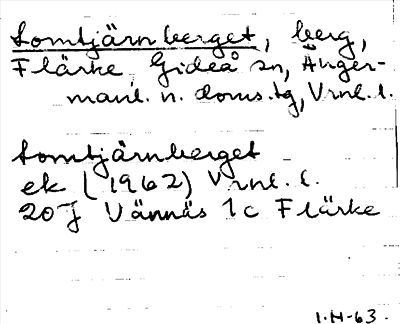 Lomtjärnberget, berg,
Flärke, Gideå sn, Ånger-
manl. n. doms.tg, Vrnl. l.
Lomtjärnberget
ek (1962) Vrnl. l.
20 J Vännäs 1c Flärke
1.H-63.